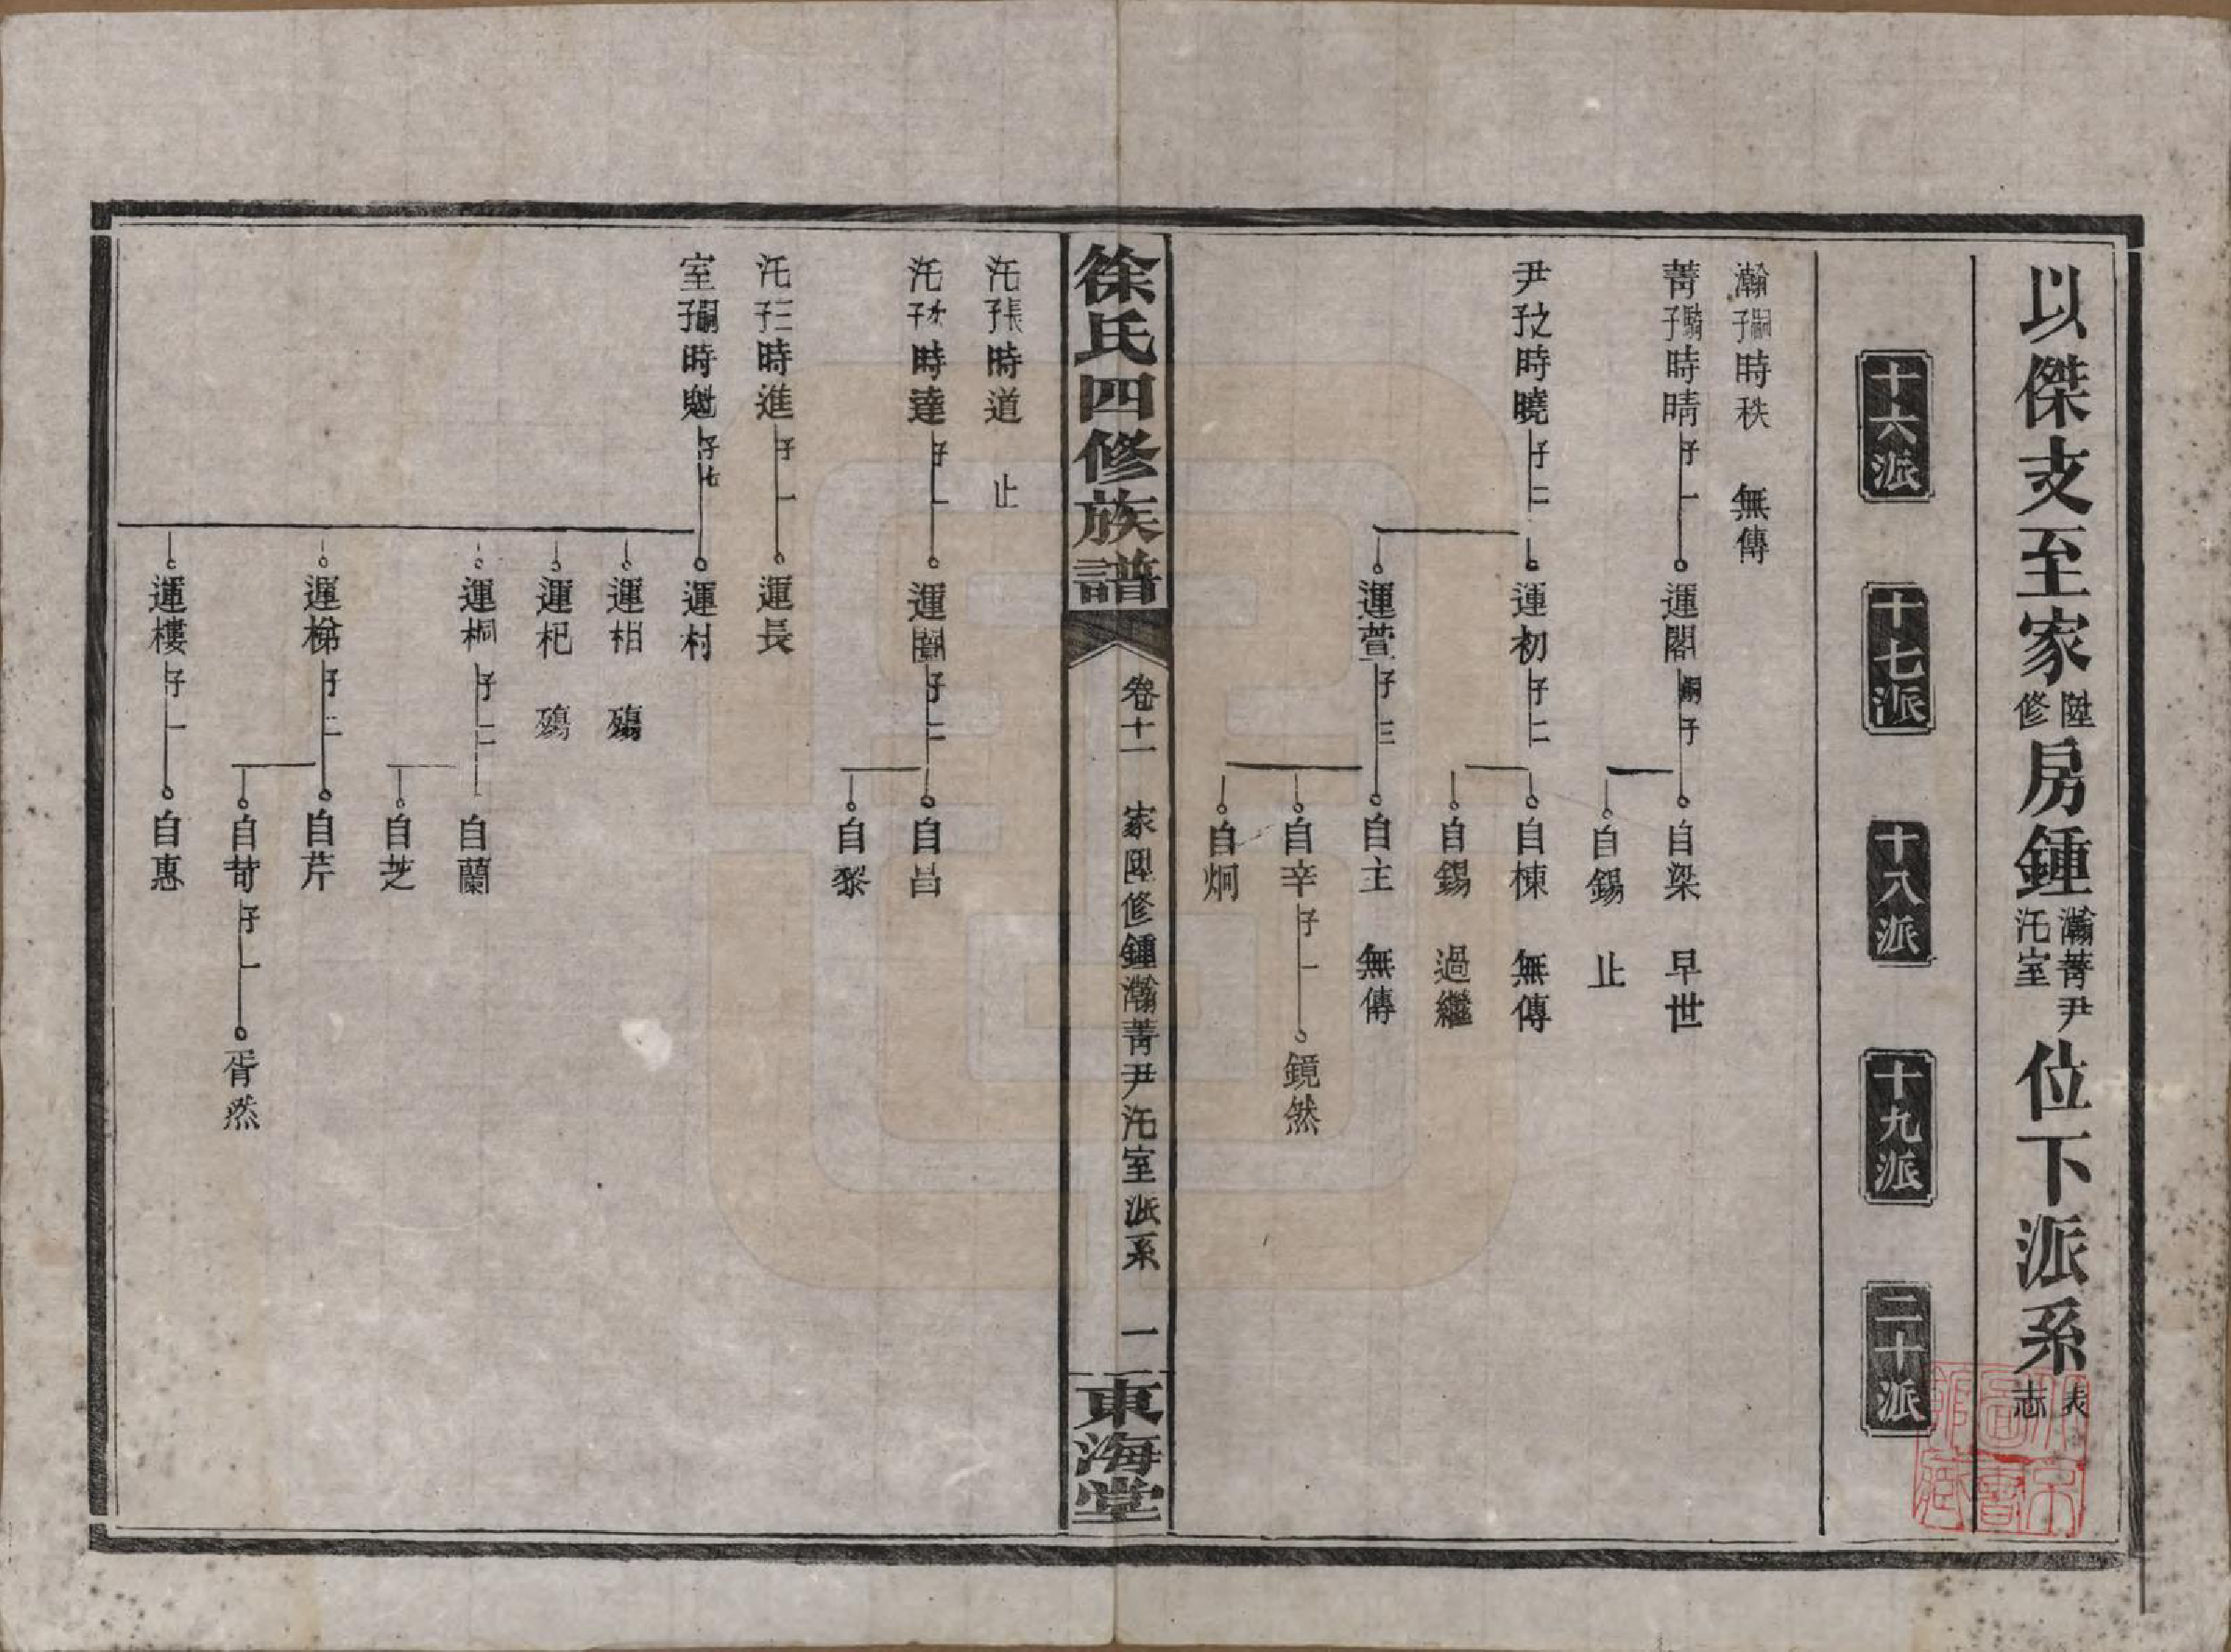 以傑支至家陞修房鍾瀚菁尹汑室位下派系表志
十六派
十七派
十八派
十九派
二十派
瀚嗣子時秩 無傳
菁子時晴 子一 運閣 嗣子 自梁 早世
自錫 止
尹次子時曉 子二 運初 子二 自棟 無傳
自錫 過繼
運萱 子三 自主 無傳
自辛 子一 鏡然
自炯
徐氏四修族譜
卷十一 家陞修鍾瀚菁尹汑室派系 一
東海堂
汑長子時道 止
汑次子時達 子一 運 子二 自昌
自黎
汑三子時進 子一 運長
室嗣子時魁 子七 運村
運柏 殤
運杞 殤
運桐 子二 自蘭
自芝
運梯 子二 自芹
自苛 子一 胥然
運樓 子一 自惠